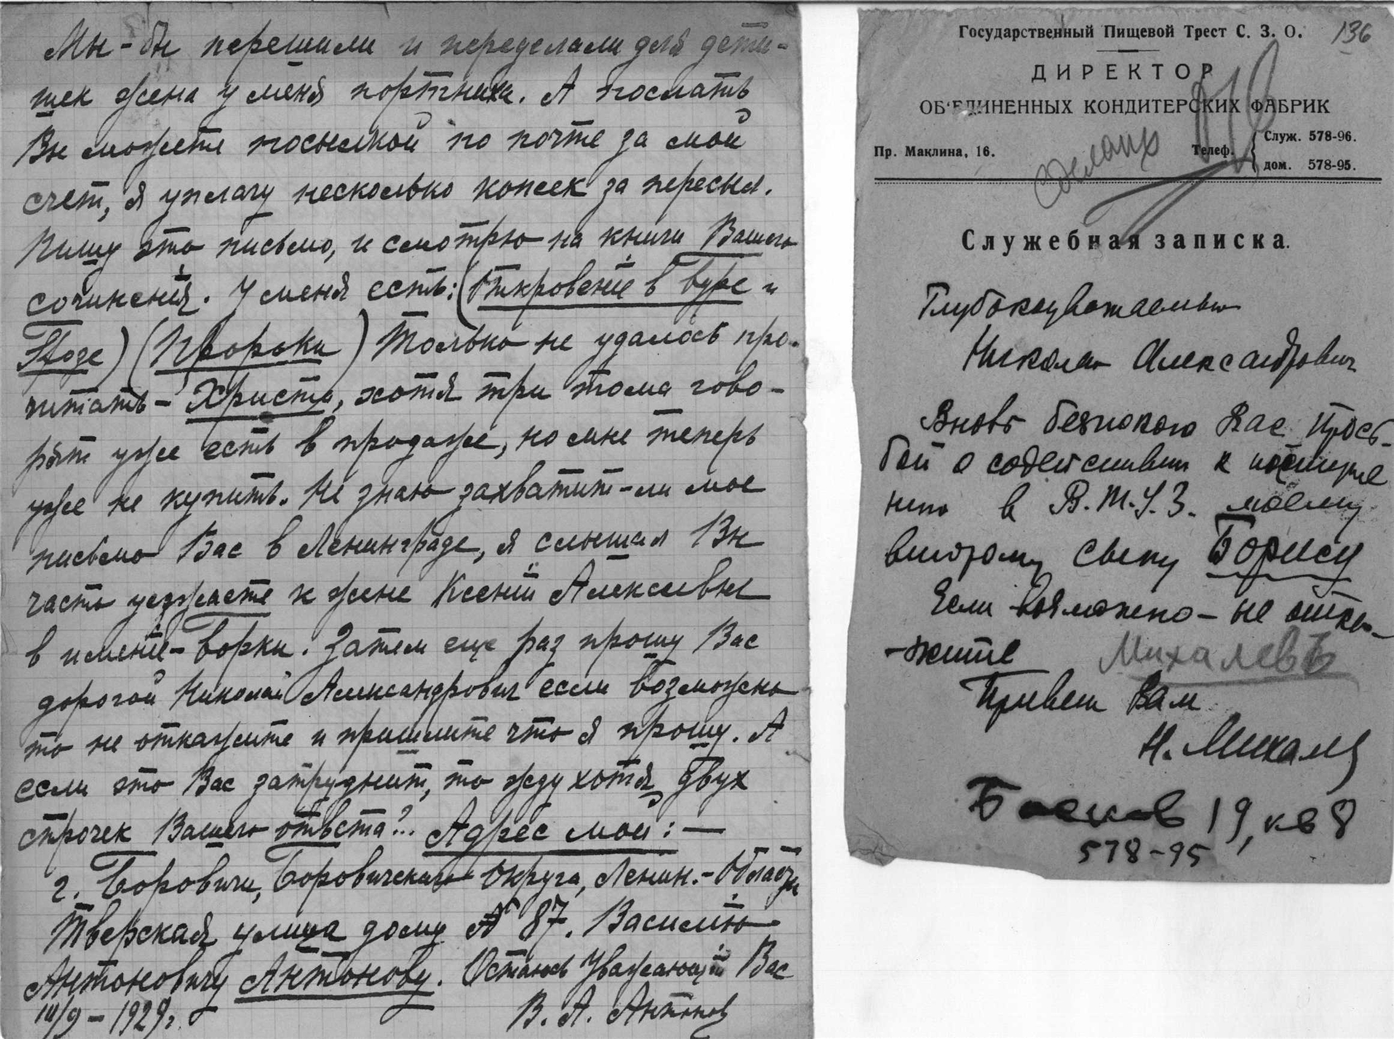 Мы-бы перешили и переделали для дети-
шек жена у меня портниха. А послать
Вы можете посылкой по почте за мой
счет, я уплачу несколько копеек за пересыл.
Пишу это письмо, и смотрю на книги Вашего
сочинения. У меня есть: (Откровение в буре и
грозе) (Пророки) Только не удалось про-
читать - Христа, хотя три тома гово-
рят уже есть в продаже, но мне теперь
уже не купить. Не знаю захватит-ли мое
письмо Вас в Ленинграде, я слышал Вы
часто уезжаете к жене Ксении Алексеевны
в имение - Борки. Затем еще раз прошу Вас
дорогой Николай Александрович если возможно
то не откажите и пришлите что я прошу. А
если это Вас затруднит, то жду хотя двух
строчек Вашего ответа?.. Адрес мой: —
г. Боровичи, Боровичского округа, Ленин.-Области
Тверская улица дому № 87. Василию
Антоновичу Антонову. Остаюсь Уважающий Вас
14/9 - 1929г. В. А. Антонов
136
Государственный Пищевой Трест С. З. О.
ДИРЕКТОР
ОБ'ЕДИНЕННЫХ КОНДИТЕРСКИХ ФАБРИК
Пр. Маклина, 16. Телеф. Служ. 578-96.
дом. 578-95.
Служебная записка.
Глубокоуважаемый
Николай Александрович
Вновь беспокою Вас прось-
бой о содействии к поступле
нию в В.Т.У.З. моему
второму сыну Борису
Если возможно - не отка-
-жите Михалевъ
Привет Вам
Н. Михалев
Басков 19, кв 8
578-95